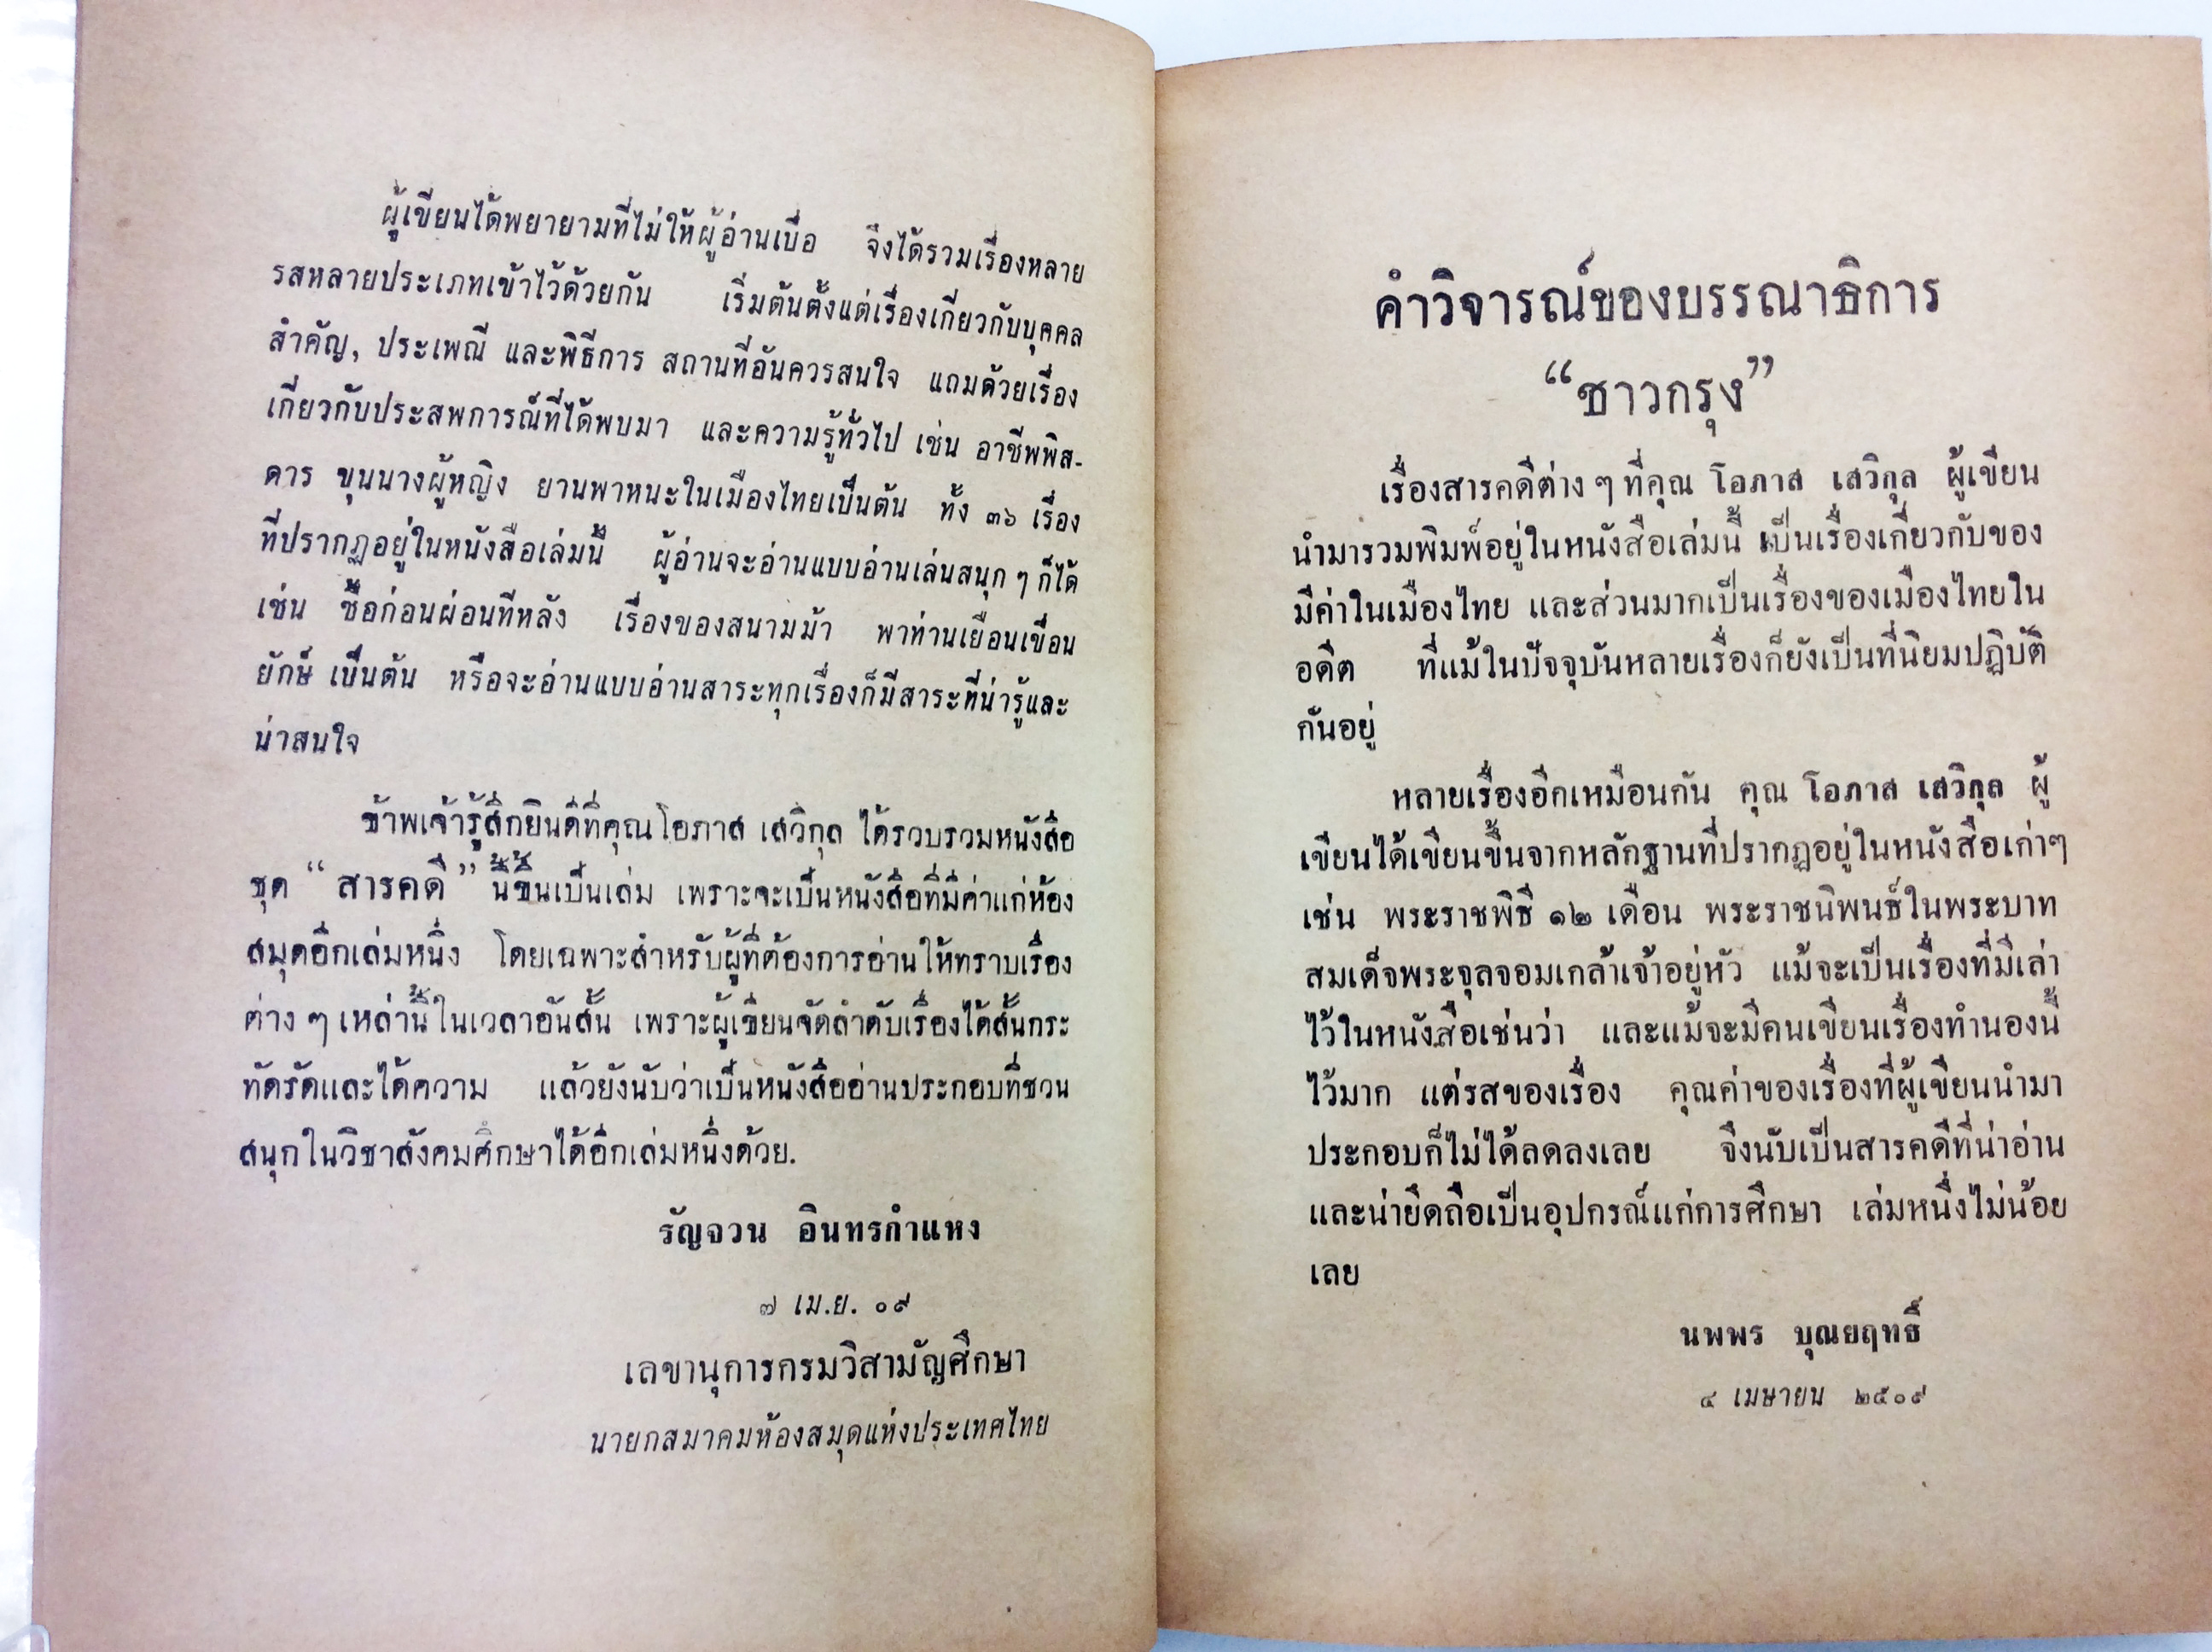 ผู้เขียนได้พยายามที่ไม่ให้ผู้อ่านเบื่อ จึงได้รวมเรื่องหลาย
รสหลายประเภทเข้าไว้ด้วยกัน เริ่มต้นตั้งแต่เรื่องเกี่ยวกับบุคคล
สำคัญ, ประเพณี และพิธีการ สถานที่อันควรสนใจ แถมด้วยเรื่อง
เกี่ยวกับประสพการณ์ที่ได้พบมา และความรู้ทั่วไป เช่น อาชีพพิส-
ดาร ขุนนางผู้หญิง ยานพาหนะในเมืองไทยเป็นต้น ทั้ง ๓๖ เรื่อง
ที่ปรากฏอยู่ในหนังสือเล่มนี้ ผู้อ่านจะอ่านแบบอ่านเล่นสนุก ๆ ก็ได้
เช่น ซื้อก่อนผ่อนทีหลัง เรื่องของสนามม้า พาท่านเยือนเขื่อน
ยักษ์ เป็นต้น หรือจะอ่านแบบอ่านสาระทุกเรื่องก็มีสาระที่น่ารู้และ
น่าสนใจ
ข้าพเจ้ารู้สึกยินดีที่คุณโอภาส เสวิกุล ได้รวบรวมหนังสือ
ชุด “สารคดี” นี้ขึ้นเป็นเล่ม เพราะจะเป็นหนังสือที่มีค่าแก่ห้อง
สมุดอีกเล่มหนึ่ง โดยเฉพาะสำหรับผู้ที่ต้องการอ่านให้ทราบเรื่อง
ต่าง ๆ เหล่านี้ในเวลาอันสั้น เพราะผู้เขียนจัดลำดับเรื่องได้สั้นกระ
ทัดรัดและได้ความ แล้วยังนับว่าเป็นหนังสืออ่านประกอบที่ชวน
สนุกในวิชาสังคมศึกษาได้อีกเล่มหนึ่งด้วย.
รัญจวน อินทรกำแหง
๗ เม.ย. ๐๙
เลขานุการกรมวิสามัญศึกษา
นายกสมาคมห้องสมุดแห่งประเทศไทย
คำวิจารณ์ของบรรณาธิการ
“ชาวกรุง”
เรื่องสารคดีต่าง ๆ ที่คุณ โอภาส เสวิกุล ผู้เขียน
นำมารวมพิมพ์อยู่ในหนังสือเล่มนี้ เป็นเรื่องเกี่ยวกับของ
มีค่าในเมืองไทย และส่วนมากเป็นเรื่องของเมืองไทยใน
อดีต ที่แม้ในปัจจุบันหลายเรื่องก็ยังเป็นที่นิยมปฏิบัติ
กันอยู่
หลายเรื่องอีกเหมือนกัน คุณ โอภาส เสวิกุล ผู้
เขียนได้เขียนขึ้นจากหลักฐานที่ปรากฏอยู่ในหนังสือเก่าๆ
เช่น พระราชพิธี ๑๒ เดือน พระราชนิพนธ์ในพระบาท
สมเด็จพระจุลจอมเกล้าเจ้าอยู่หัว แม้จะเป็นเรื่องที่มีเล่า
ไว้ในหนังสือเช่นว่า และแม้จะมีคนเขียนเรื่องทำนองนี้
ไว้มาก แต่รสของเรื่อง คุณค่าของเรื่องที่ผู้เขียนนำมา
ประกอบก็ไม่ได้ลดลงเลย จึงนับเป็นสารคดีที่น่าอ่าน
และน่ายึดถือเป็นอุปกรณ์แก่การศึกษา เล่มหนึ่งไม่น้อย
เลย
นพพร บุณยฤทธิ์
๔ เมษายน ๒๕๐๙